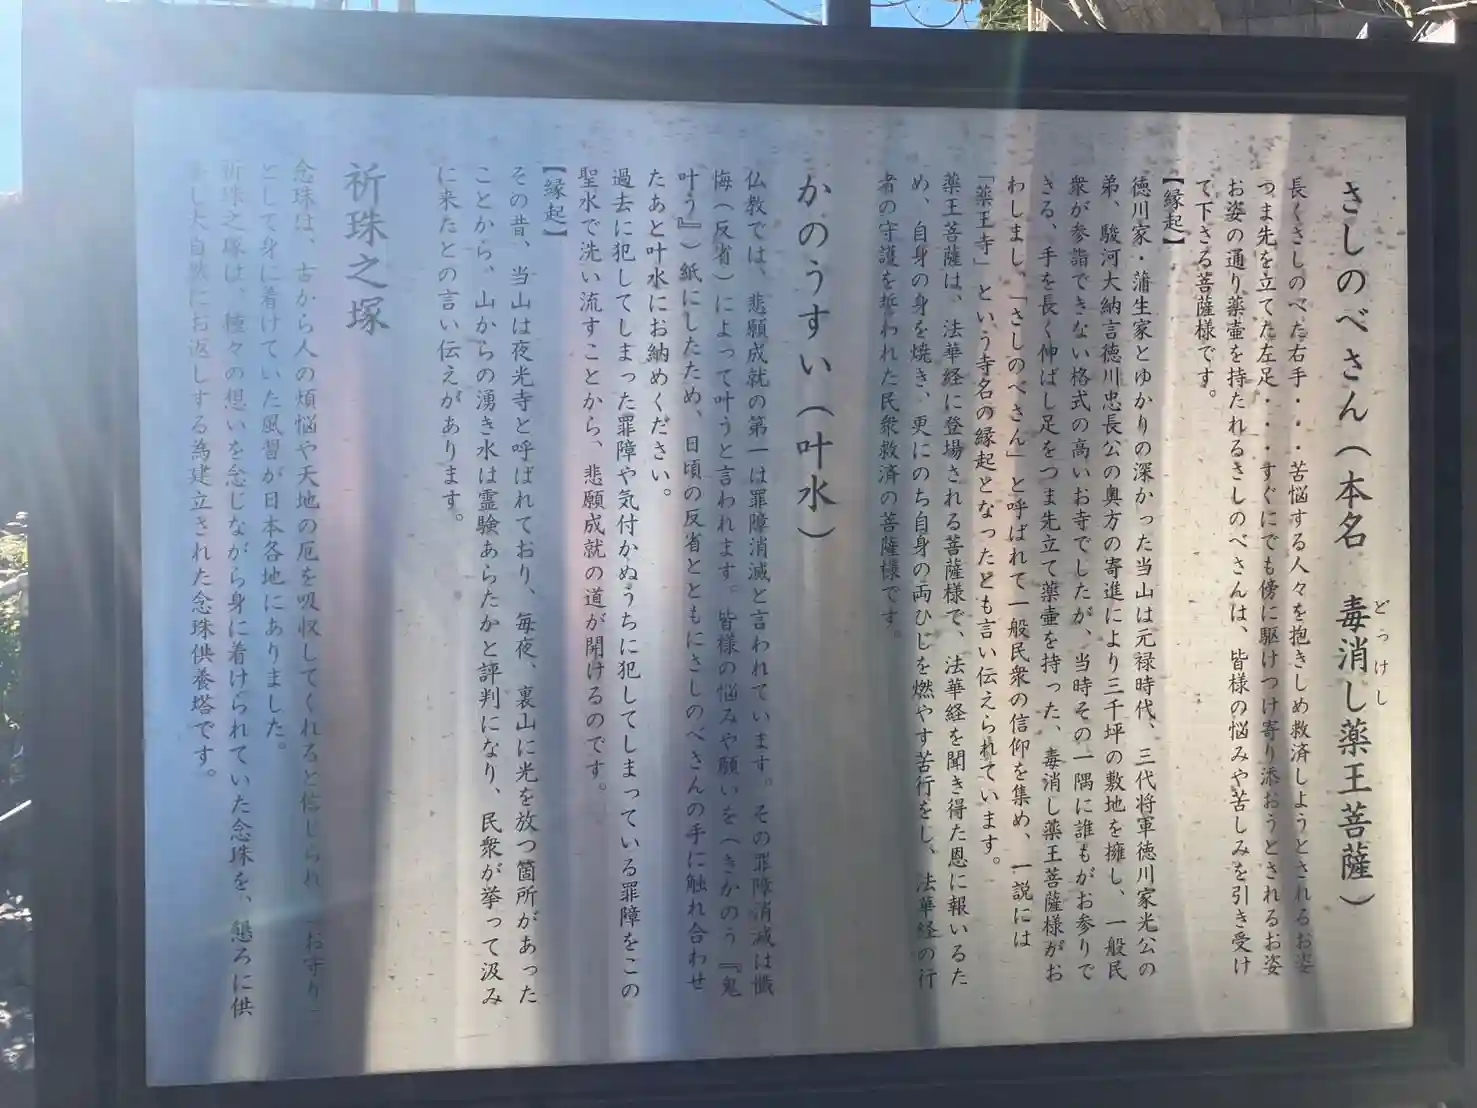 さしのべさん（本名　毒消し薬王菩薩）
どっけし
長くさしのべた右手・・・苦悩する人々を抱きしめ救済しようとされるお姿
つま先を立てた左足・・・すぐにでも傍に駆けつけ寄り添おうとされるお姿
お姿の通り薬壷を持たれるさしのべさんは、皆様の悩みや苦しみを引き受け
て下さる菩薩様です。
【縁起】
徳川家・蒲生家とゆかりの深かった当山は元禄時代、三代将軍徳川家光公の
弟、駿河大納言徳川忠長公の奥方の寄進により三千坪の敷地を擁し、一般民
衆が参詣できない格式の高いお寺でしたが、当時その一隅に誰もがお参りで
きる、手を長く伸ばし足をつま先立て薬壷を持った、毒消し薬王菩薩様がお
わしまし、「さしのべさん」と呼ばれて一般民衆の信仰を集め、一説には
「薬王寺」という寺名の縁起となったとも言い伝えられています。
薬王菩薩は、法華経に登場される菩薩様で、法華経を聞き得た恩に報いるた
め、自身の身を焼き、更にのち自身の両ひじを燃やす苦行をし、法華経の行
者の守護を誓われた民衆救済の菩薩様です。
かのうすい（叶水）
仏教では、悲願成就の第一は罪障消滅と言われています。その罪障消滅は懺
悔（反省）によって叶うと言われます。皆様の悩みや願いを（きかのう『鬼
叶う』）紙にしたため、日頃の反省とともにさしのべさんの手に触れ合わせ
たあと叶水にお納めください。
過去に犯してしまった罪障や気付かぬうちに犯してしまっている罪障をこの
聖水で洗い流すことから、悲願成就の道が開けるのです。
【縁起】
その昔、当山は夜光寺と呼ばれており、毎夜、裏山に光を放つ箇所があった
ことから、山からの湧き水は霊験あらたかと評判になり、民衆が挙って汲み
に来たとの言い伝えがあります。
祈珠之塚
念珠は、古から人の煩悩や天地の厄を吸収してくれると信じられ「お守り」
として身に着けていた風習が日本各地にありました。
祈珠之塚は、種々の想いを念じながら身に着けられていた念珠を、懇ろに供
養し大自然にお返しする為建立された念珠供養塔です。